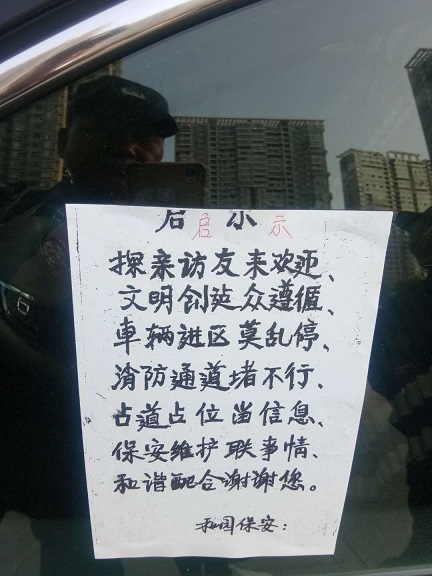 启启示示
探亲访友来欢迎、
文明创建众遵循、
車辆进区莫乱停、
消防通道堵不行、
占道占位畄信息、
保安维护联事情、
和谐配合谢谢您。
和园保安：